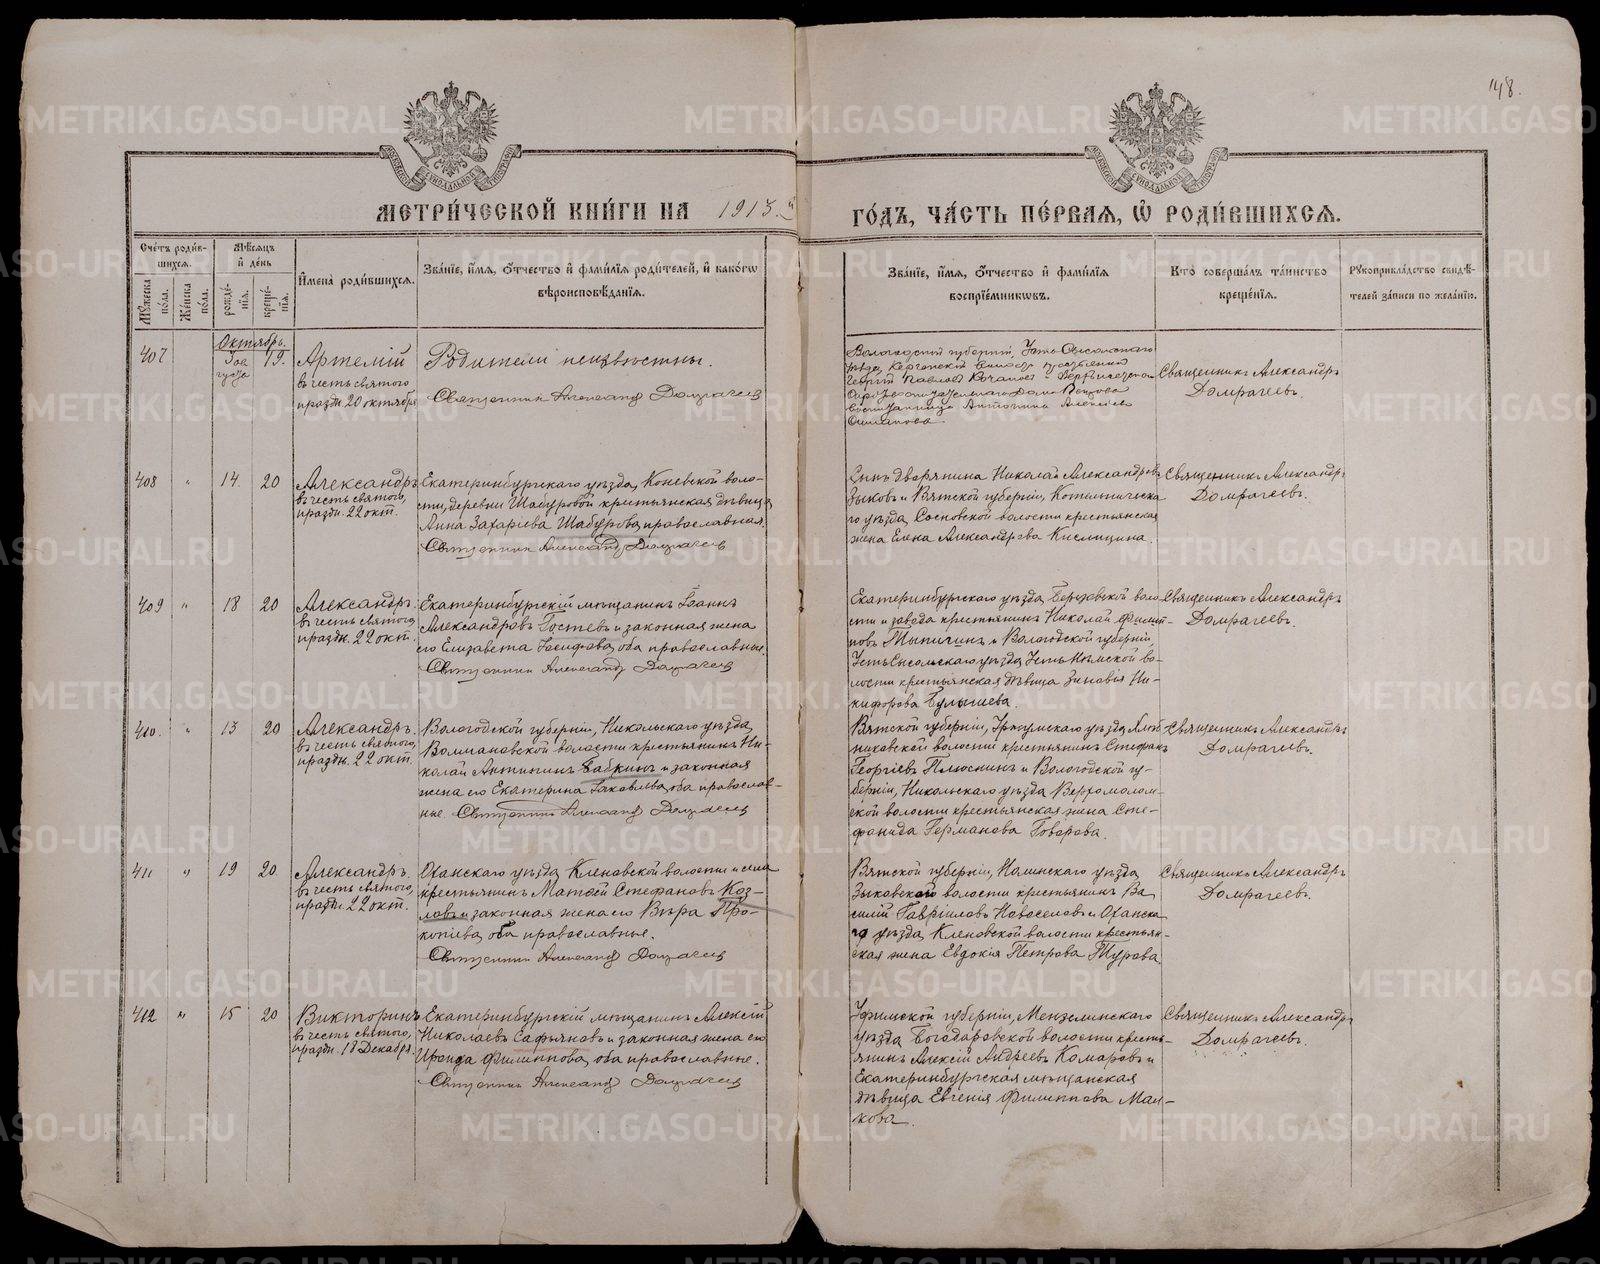 148.
МЕТРИ́ЧЕСКОЙ КНИ́ГИ НА 1913.й
ГО́ДЪ, ЧА́СТЬ ПЕ́РВАЯ, Ѡ РОДИ́ВШИХСЯ.
Сче́тъ роди́в-
шихся.
Мѣ́сяцъ
и҆ де́нь
Мꙋ́жеска
по́ла.
Же́нска
по́ла.
рожде́-
нїя.
креще́-
нїя.
И҆мена̀ роди́вшихся.
Зва́нїе, и҆́мя, ѻ҆́тчество и҆ фами́лїя роди́телей, и҆ како́гѡ
вѣроисповѣ́данїя.
Зва́нїе, и҆́мя, ѻ҆́тчество и҆ фами́лїя
воспрїе́мникѡвъ.
Кто̀ соверша́лъ та́инство
креще́нїя.
Рꙋкоприкла́дство свидѣ́-
телей за́писи по жела́нїю.
Октябрь.
407 19. Артемій
въ честь святого
праздн. 20 октября
Родители неизвѣстны.
Священникъ Александръ Домрачевъ
Вологодской губерніи, Усть-Сысольскаго
Георгій Павловъ
Священникъ Александръ
Домрачевъ.
408 " 14. 20 Александръ
въ честь святого,
праздн. 22 окт.
Екатеринбургскаго уѣзда, Коневской воло-
сти, деревни Шабуровой крестьянская дѣвица
Анна Захаріева Шабурова, православная.
Священникъ Александръ Домрачевъ
Сынъ дворянина Николай Александровъ
Зыковъ и Вятской губерніи, Котельническа
го уѣзда, Сосновской волости крестьянская
жена Елена Александрова Кислицина.
Священникъ Александръ
Домрачевъ.
409 " 18 20 Александръ.
въ честь святого,
праздн. 22 окт.
Екатеринбургскій мѣщанинъ Іоаннъ
Александровъ Гостевъ и законная жена
его Елизавета Іосифова, оба православные.
Священникъ Александръ Домрачевъ
Екатеринбургскаго уѣзда, Березовской воло
сти и завода крестьянинъ Николай Филип-
повъ и Вологодской губерніи
Усть Сысольскаго уѣзда, Усть Немской во-
лости крестьянская дѣвица Зиновія Ни-
кифорова Булышева.
Священникъ Александръ
Домрачевъ.
410. " 13 20 Александръ.
въ честь святого,
праздн. 22 окт.
Вологодской губерніи, Никольскаго уѣзда,
Волмановской волости крестьянинъ Ни-
колай Антипинъ Бабкинъ и законная
жена его Екатерина Іаковлева, оба православ-
ные. Священникъ Александръ Домрачевъ
Вятской губерніи, Уржумскаго уѣзда
волости крестьянинъ Стефанъ
Георгіевъ Плюснинъ и Вологодской гу-
берніи, Никольскаго уѣзда
ской волости крестьянская жена Сте-
фанида Германова Говорова.
Священникъ Александръ
Домрачевъ.
411 " 19 20. Александръ.
въ честь святого,
праздн. 22 окт.
Оханскаго уѣзда, Кленовской волости и села
крестьянинъ Матѳей Стефановъ Коз-
ловъ и законная жена его Вѣра Про-
копіева, оба православные.
Священникъ Александръ Домрачевъ
Вятской губерніи, Нолинскаго уѣзда
Зыковской волости крестьянинъ Ва
силій Гавріиловъ Новоселовъ и Оханска
го уѣзда, Кленовской волости крестьян-
ская жена Евдокія Петрова Турова.
Священникъ Александръ
Домрачевъ.
412 " 15 20 Викторинъ
въ честь святого,
праздн. 18 Декабря.
Екатеринбургскій мѣщанинъ Алексій
Николаевъ Сафьяновъ и законная жена его
Ираида Филиппова, оба православные.
Священникъ Александръ Домрачевъ
Уфимской губерніи, Мензелинскаго
уѣзда, Богодаровской волости кресть-
янинъ Алексій Андреевъ Комаровъ и
Екатеринбургская мѣщанская
дѣвица Евгенія Филиппова Мал-
кова.
Священникъ Александръ
Домрачевъ.
METRIKI.GASO-URAL.RU